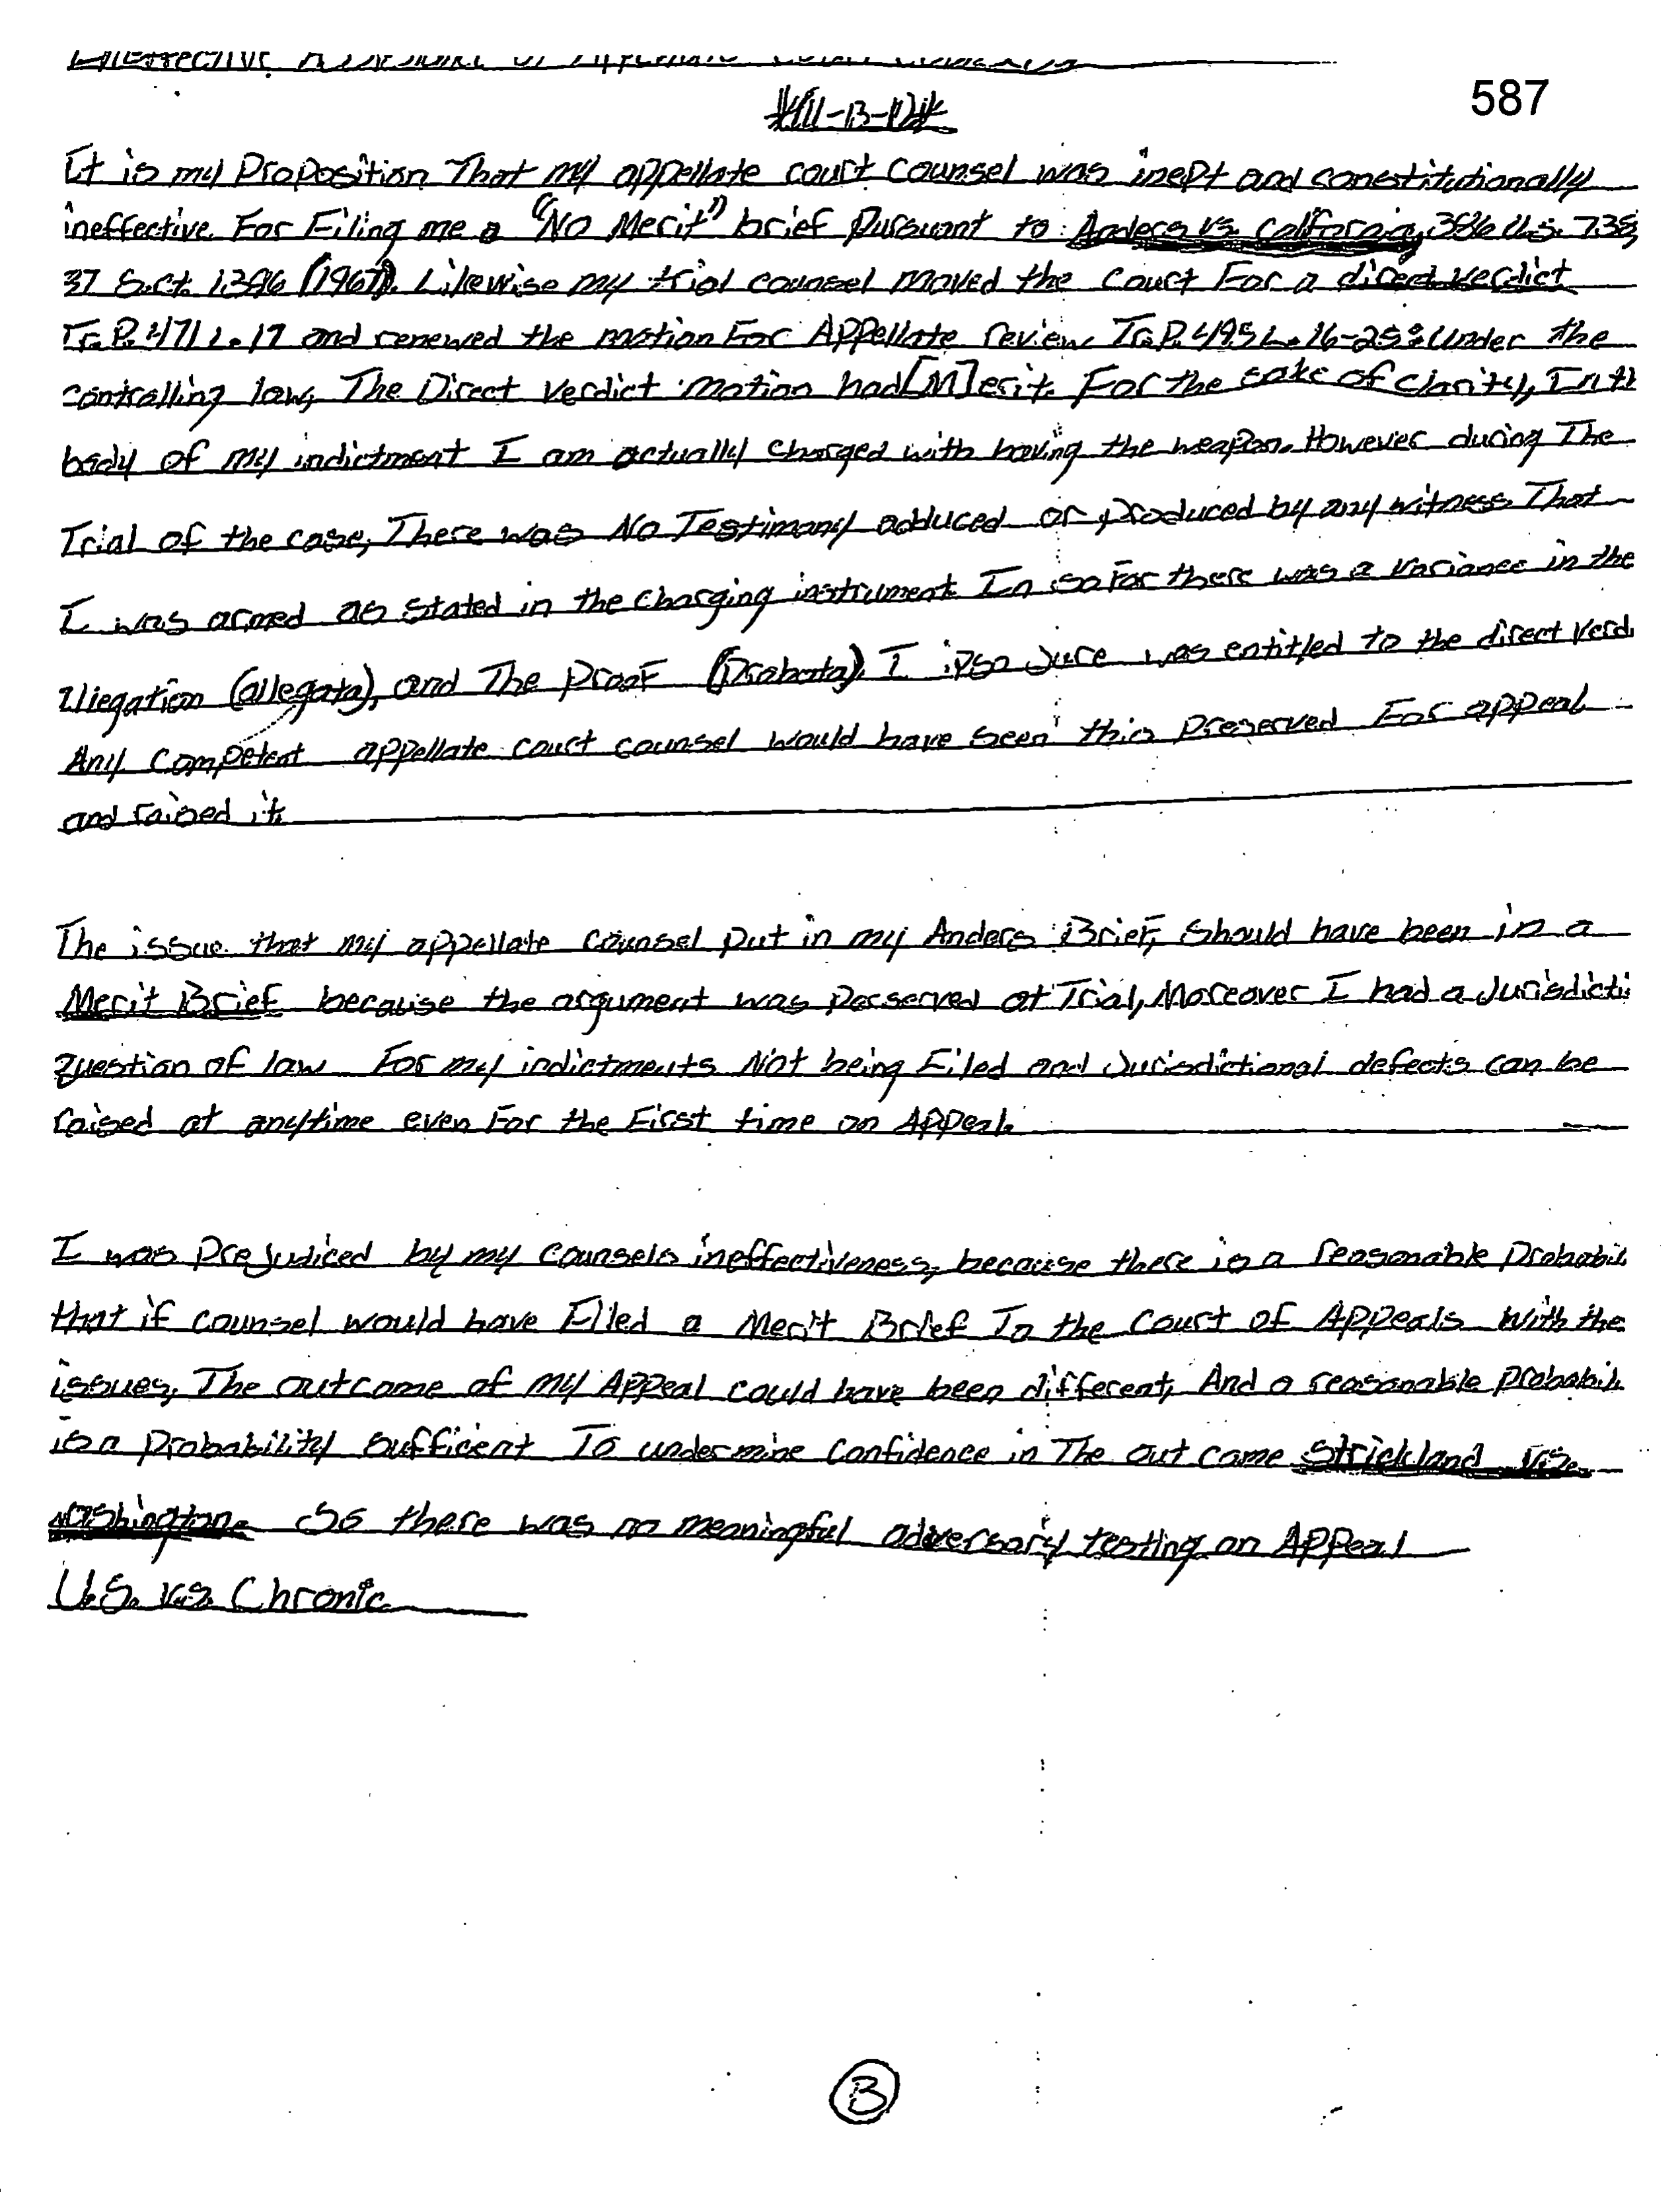 Ineffective
587
It is my Proposition That my appellate court Counsel was inept and constitutionally
ineffective For Filing me a "No Merit" brief Pursuant to Anders vs. California, 386 U.S. 738,
37 S.ct. 1396 (1967). Likewise my trial counsel moved the Court For a direct verdict
Tr. P. 471 L. 17 and renewed the motion For Appellate review Tr. P. 495 L. 16-25: Under the
controlling law, The Direct Verdict motion had [M]erit. For the sake of clarity, In th
body of my indictment I am actually charged with having the weapon. However during The
Trial of the case, There was No Testimony adduced or produced by any witness That
I was armed as stated in the charging instrument In so For there was a variance in the
llegation (allegata), and The Proof (Probata). I ipso Jure was entitled to the direct Verd
Any Competent appellate court counsel would have seen this Preserved For appeal
and raised it.
The issue that my appellate counsel put in my Anders Brief, Should have been in a
Merit Brief because the argument was Perserved at Trial, Moreover I had a Jurisdicti
question of law For my indictments Not being Filed and Jurisdictional defects can be
raised at anytime even For the First time on Appeal.
I was Prejudiced by my counsels ineffectiveness, because there is a reasonable Probabil
that if counsel would have Filed a Merit Brief To the Court of Appeals With the
issues, The outcome of my Appeal could have been different, And a reasonable probabil
is a probability sufficent To undermine Confidence in The out come Strickland Vs.
washington. So there was no meaningful adversary testing on Appeal
U.S. vs. Chronic
B